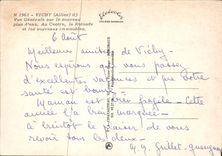 N 2961 - VICHY (Allier)
Vue Générale sur le nouveau
plan d'eau. Au Centre, la Rotonde
et les nouveaux immeubles.
6 Août
Meilleures amitiés de Vichy.
Nous espérons que vous passez
d'excellentes vacances et que votre
santé est bonne.
Maman est très fatiguée. Cette
année l'a très marquée.
A bientôt le plaisir de vous
revoir tous les deux.